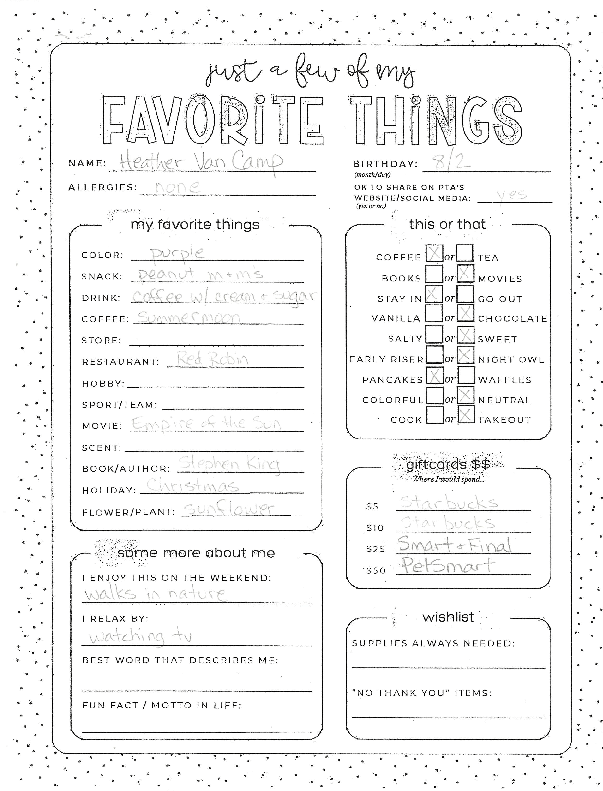 just a few of my
FAVORITE THINGS
NAME: Heather Van Camp
BIRTHDAY: 8/2
(month/day)
ALLERGIES: none
OK TO SHARE ON PTA'S
WEBSITE/SOCIAL MEDIA: yes
(yes or no)
my favorite things
COLOR: purple
SNACK: peanut m+ms
DRINK: coffee w/ cream + sugar
COFFEE: Summermoon
STORE:
RESTAURANT: Red Robin
HOBBY:
SPORT/TEAM:
MOVIE: Empire of the Sun
SCENT:
BOOK/AUTHOR: Stephen King
HOLIDAY: Christmas
FLOWER/PLANT: sunflower
this or that
COFFEE X or TEA
BOOKS or X MOVIES
STAY IN X or GO OUT
VANILLA or X CHOCOLATE
SALTY or X SWEET
EARLY RISER or X NIGHT OWL
PANCAKES X or WAFFLES
COLORFUL or X NEUTRAL
COOK or X TAKEOUT
giftcards $$
Where I would spend...
$5 Starbucks
$10 Starbucks
$25 Smart + Final
$50 PetSmart
some more about me
I ENJOY THIS ON THE WEEKEND:
walks in nature
I RELAX BY:
watching tv
BEST WORD THAT DESCRIBES ME:
FUN FACT / MOTTO IN LIFE:
wishlist
SUPPLIES ALWAYS NEEDED:
"NO THANK YOU" ITEMS: